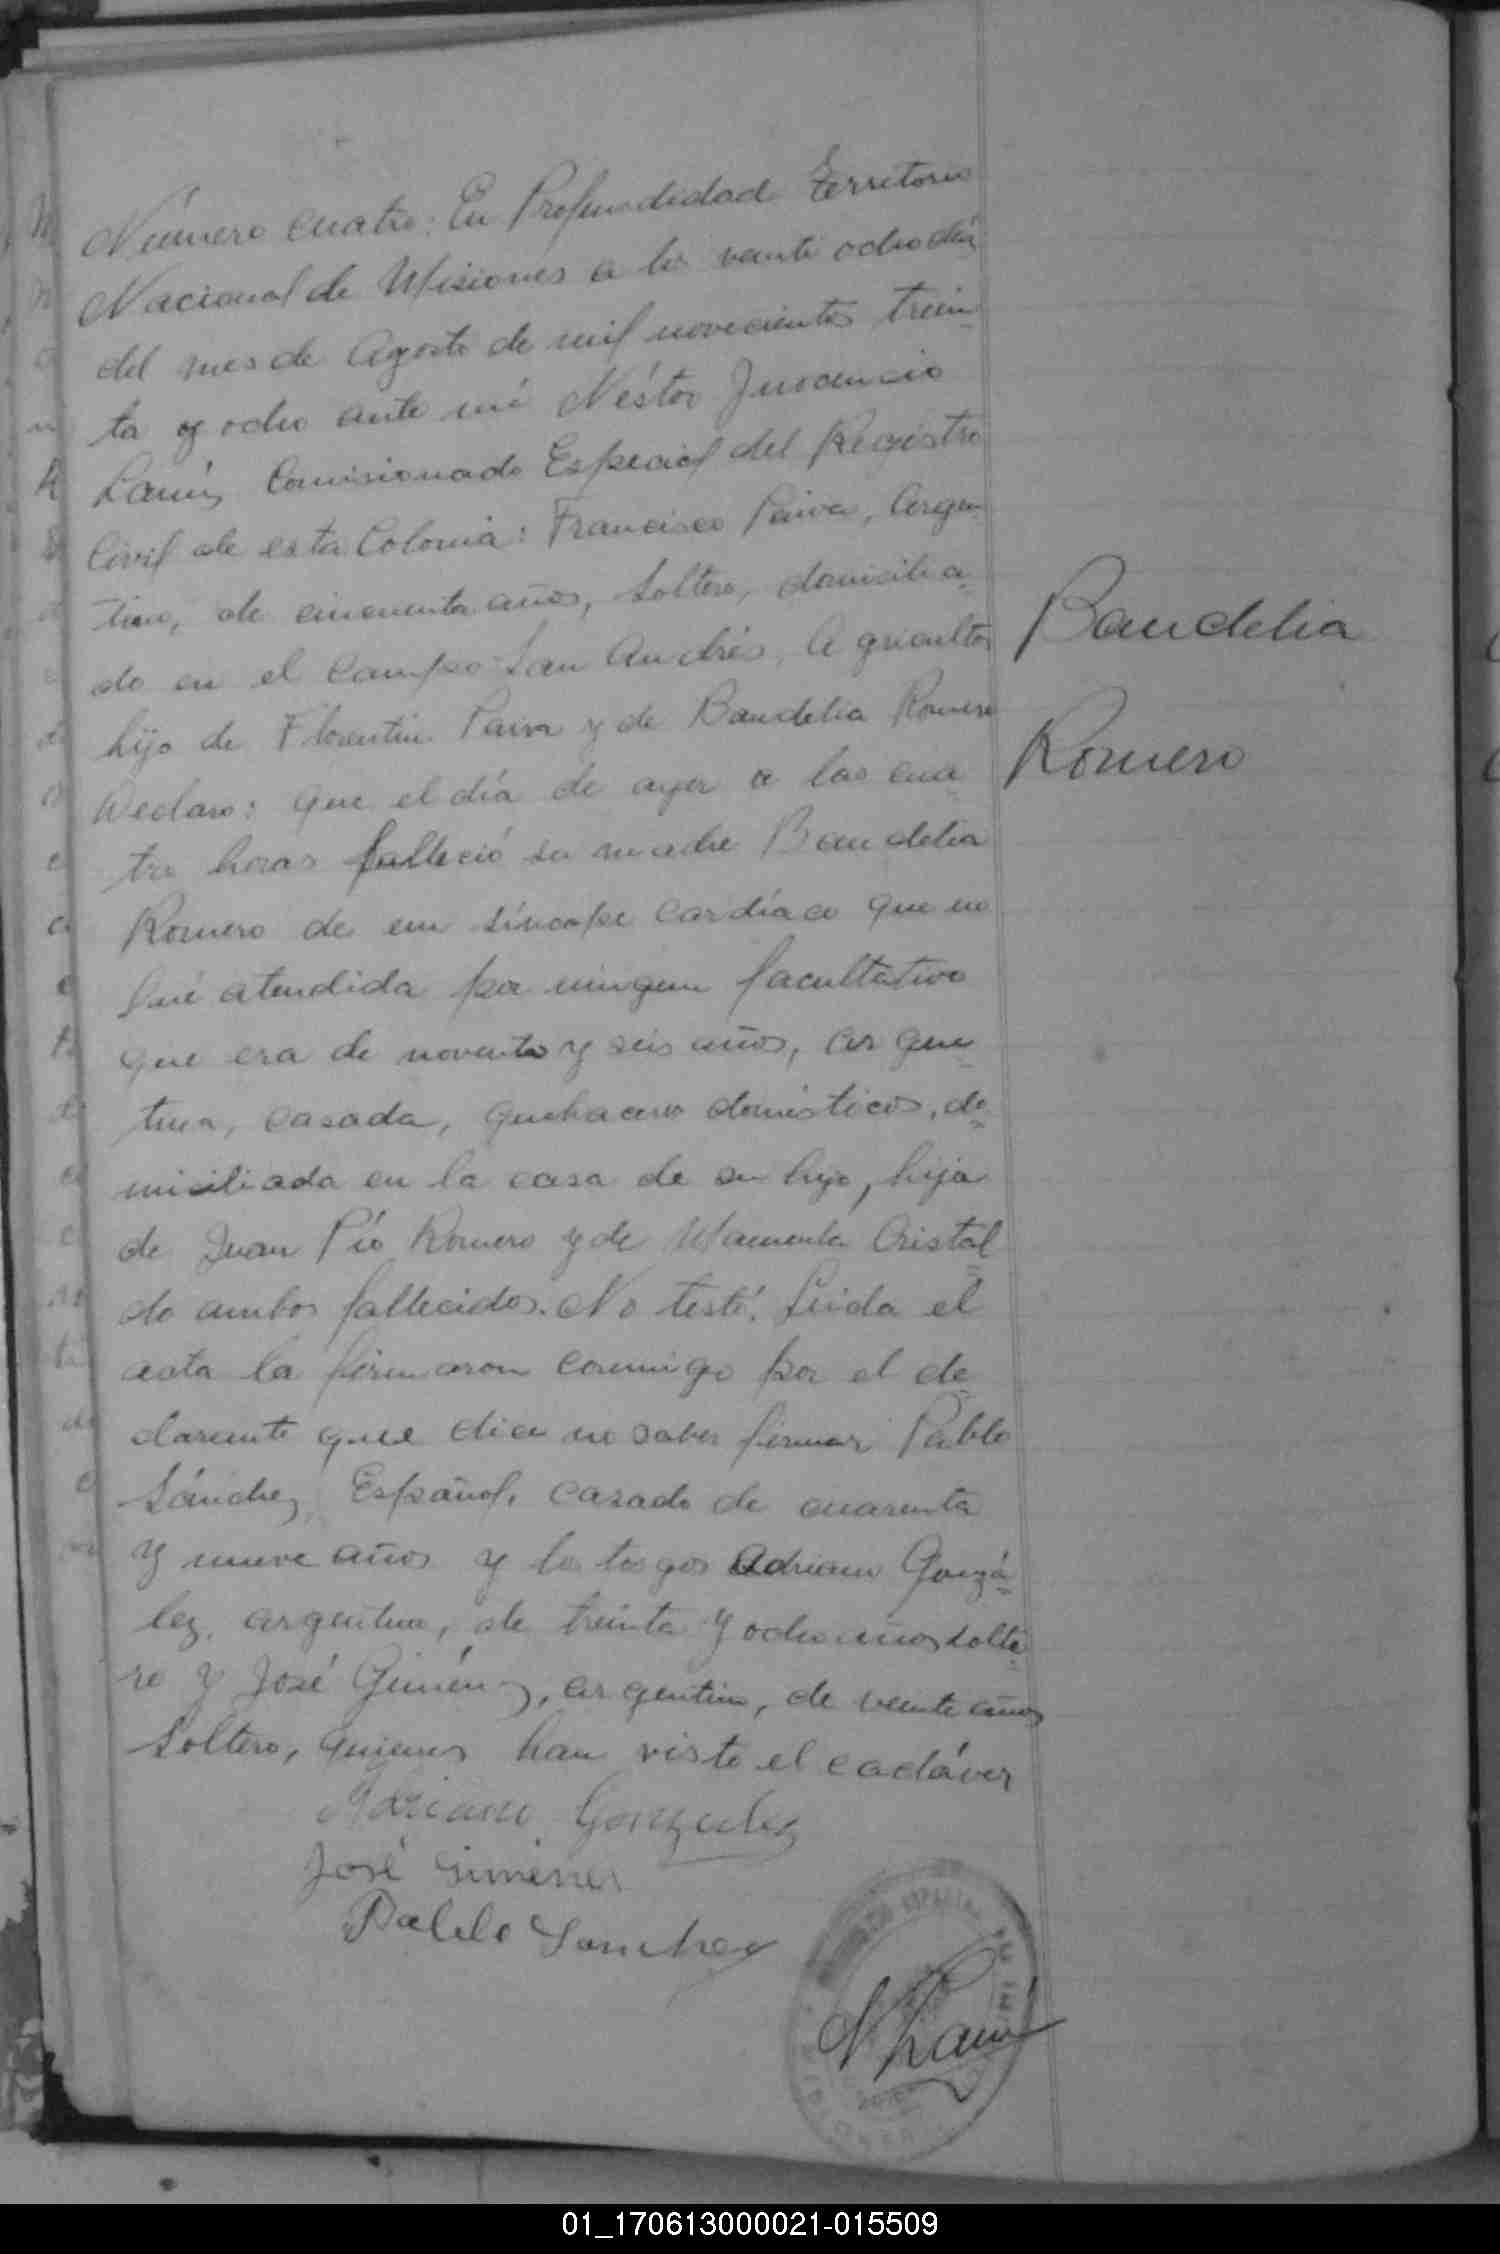 Número cuatro: En Profundidad Territorio
Nacional de Misiones a los veinti ocho días
del mes de Agosto de mil novecientos trein-
ta y ocho ante mí Néstor Inocencio
Comisionado Especial del Registro
Civil de esta Colonia: Francisco Paiva, Argen-
tino, de cincuenta años, soltero, domicilia-
do en el Campo San Andrés, Agricultor
hijo de Florentin Paiva y de Baudelia Romero
Declaro: que el día de ayer a las cua-
tro horas falleció su madre Baudelia
Romero de un síncope cardíaco que no
fué atendida por ningun facultativo
que era de noventa y seis años, argen-
tina, casada, quehaceres domésticos, do-
miciliada en la casa de su hijo, hija
de Juan Pío Romero y de Cristal-
do ambos fallecidos. No testó. Leida el
acta la firmaron conmigo por el de-
clarante que dice no saber firmar Pablo
Sánchez, Español, casado de cuarenta
y nueve años y los tesgos Adriano Gonzá-
lez, argentino, de treinta y ocho años solte-
ro y José Giménez, argentino, de veinte años
soltero, quienes han visto el cadáver
Adriano Gonzalez
José Gimenez
Pablo Sanchez
Baudelia
Romero
01_170613000021-015509